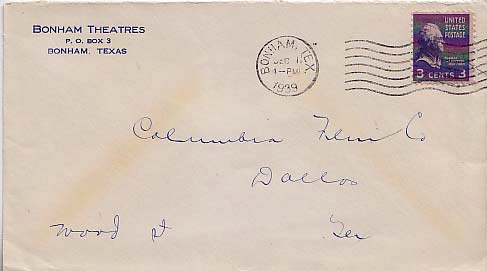 BONHAM THEATRES
P. O. BOX 3
BONHAM, TEXAS
BONHAM, TEX.
DEC
-PM
1939
UNITED
STATES
POSTAGE
3 CENTS 3
Columbia Film Co
Dallas
Wood st
Tex